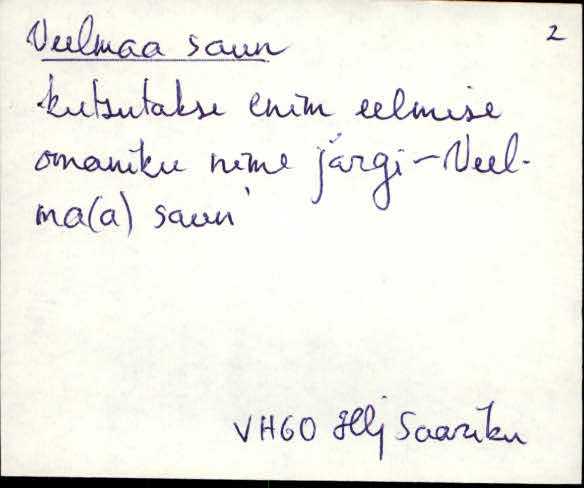 Veelmaa saun
2
kutsutakse enim eelmise
omaniku nime järgi – Veel-
ma(a) saun
VHGO Hlj Saariku